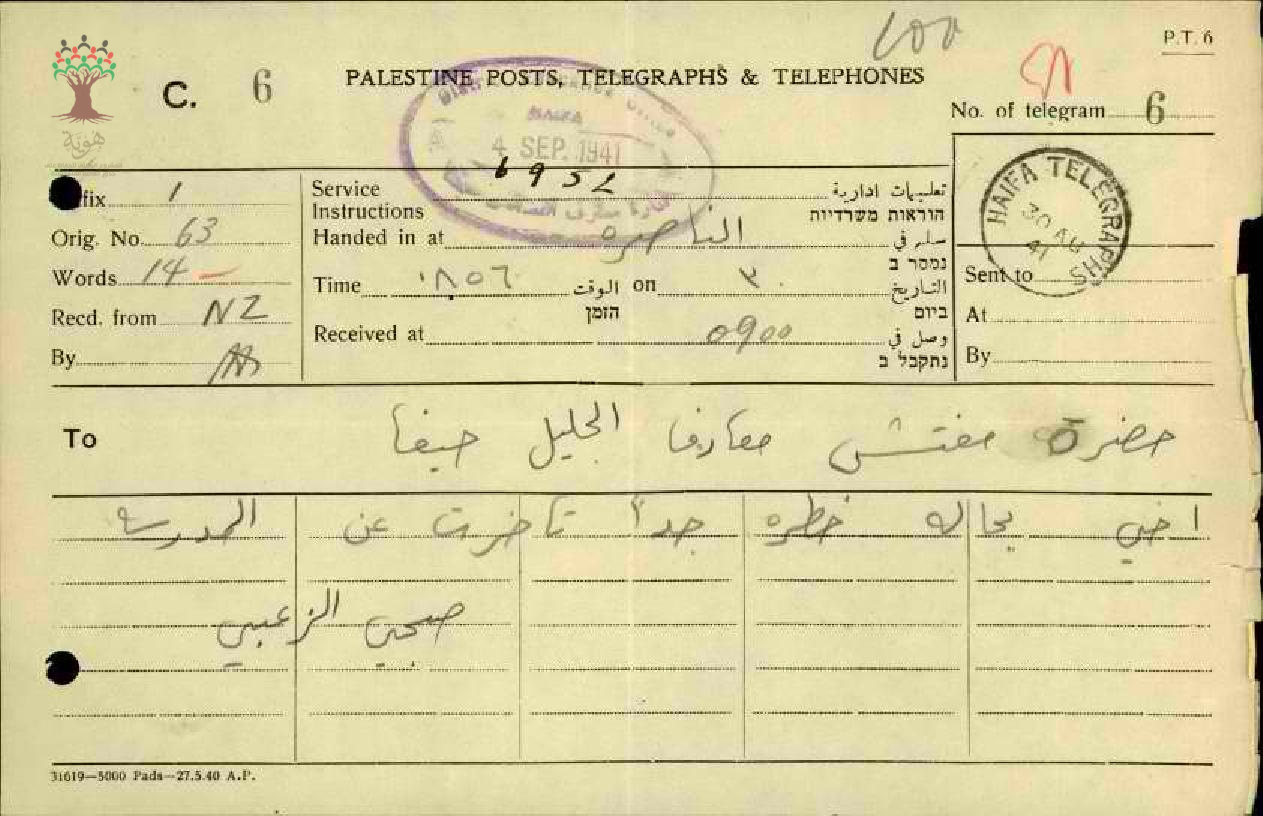 P.T. 6
C. 6
PALESTINE POSTS, TELEGRAPHS & TELEPHONES
No. of telegram 6
هوية
HAIFA
4 SEP. 1941
6952
HAIFA TELEGRAPHS
30 AU
41
fix 1
Orig. No. 63
Words 14
Recd. from NZ
By
Service Instructions
تعليمات ادارية
הוראות משרדיות
Handed in at الناصره سلم في
נמסר ב
Time ١٨٥٦ الوقت on ٣٠ التاريخ
הזמן
ביום
Received at 0900 وصل في
נתקבל ב
Sent to
At
By
To حضرة مفتش معارف الجليل حيفا
اخي بحاله خطره جداً تأخرت عن المدرسه
صبحي الزعبي
31619—5000 Pads—27.5.40 A.P.